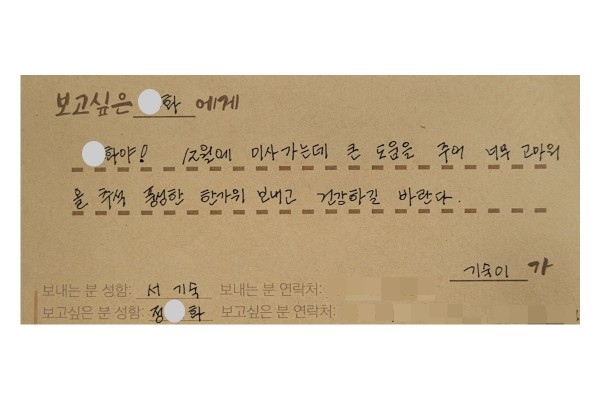 보고싶은 화 에게
화야! 12월에 이사가는데 큰 도움을 주어 너무 고마워
올 추석 풍성한 한가위 보내고 건강하길 바란다.
기숙이 가
보내는 분 성함: 서 기숙 보내는 분 연락처:
보고싶은 분 성함: 정 화 보고싶은 분 연락처: